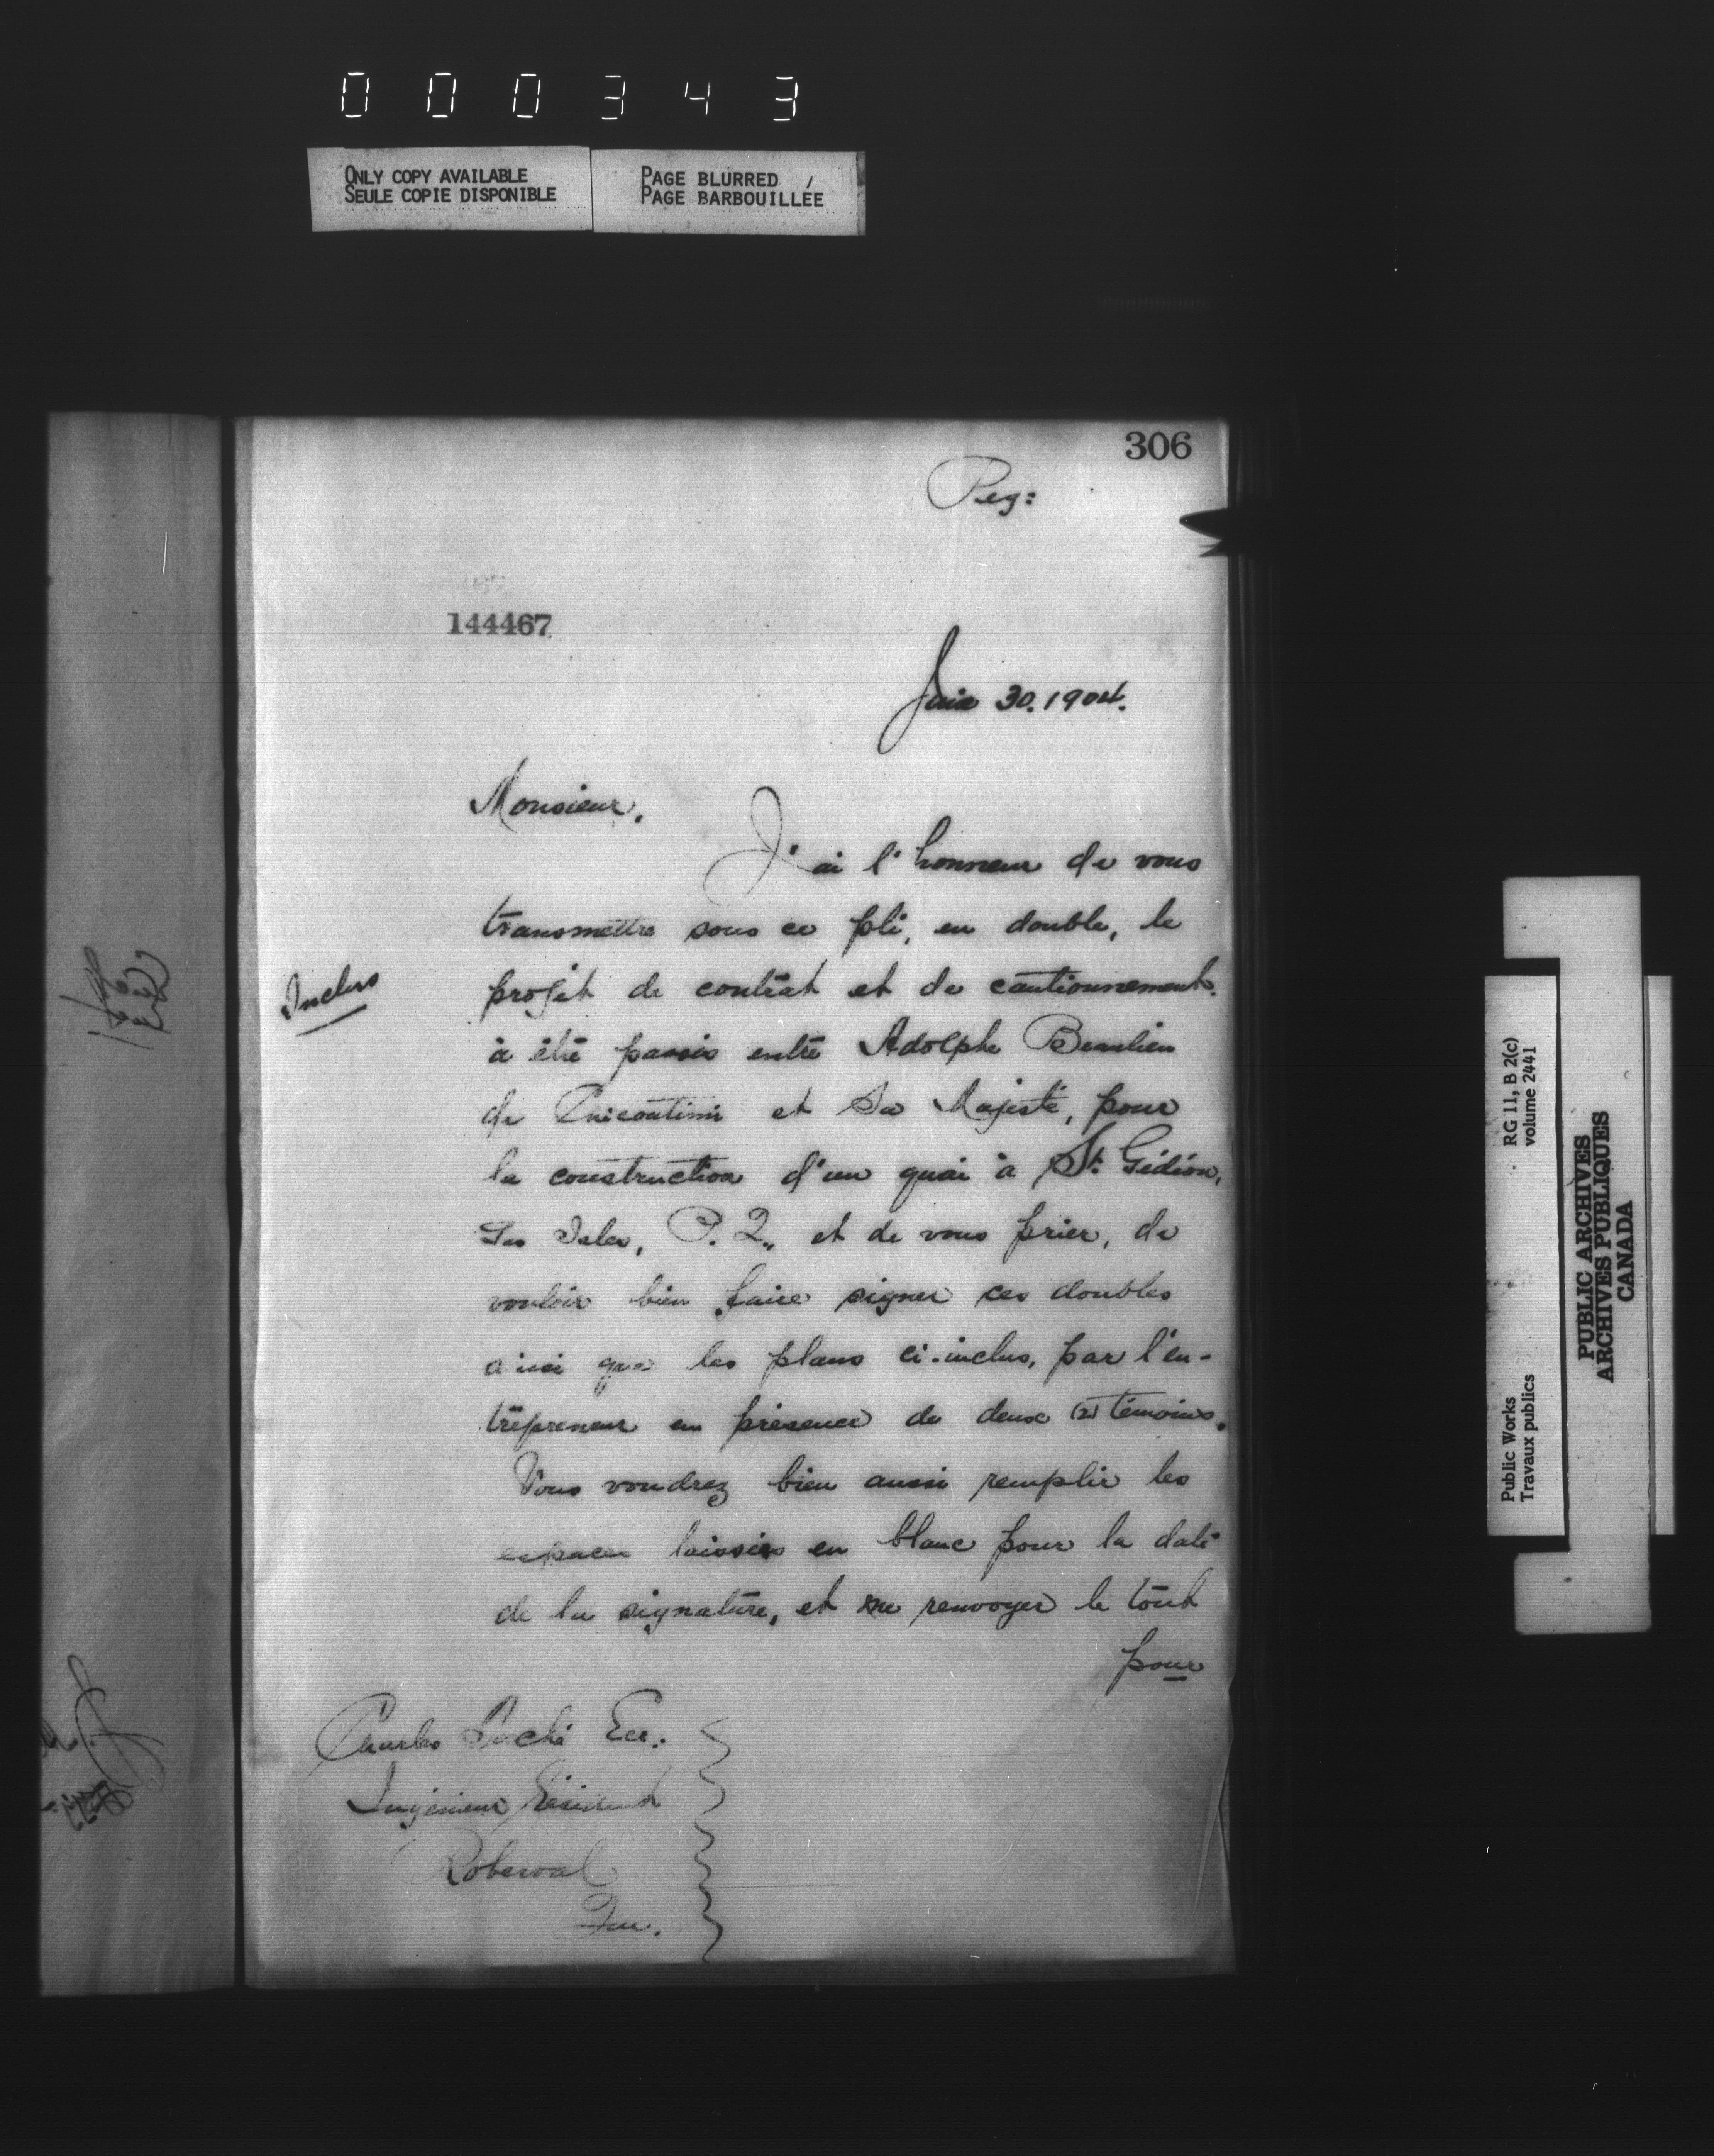 000343
ONLY COPY AVAILABLE
SEULE COPIE DISPONIBLE
PAGE BLURRED
PAGE BARBOUILLÉE
306
Reg:
144467
Juin 30. 1904.
Monsieur,
J'ai l'honneur de vous
transmettre sous ce pli, en double, le
Inclus
projet de contrat et de cautionnement
à être passés entre Adolphe Beaulieu
de Chicoutimi et Sa Majesté, pour
la construction d'un quai à St. Gédéon,
Les Isles, P. Q., et de vous prier, de
vouloir bien faire signer ces doubles
ainsi que les plans ci-inclus, par l'en-
trepreneur en présence de deux (2) témoins.
Vous voudrez bien aussi remplir les
espaces laissés en blanc pour la date
de la signature, et me renvoyer le tout
pour
Charles Ecr.
Ingénieur Résident
Roberval
Que.
RG 11, B 2(c)
volume 2441
Public Works
Travaux publics
PUBLIC ARCHIVES
ARCHIVES PUBLIQUES
CANADA